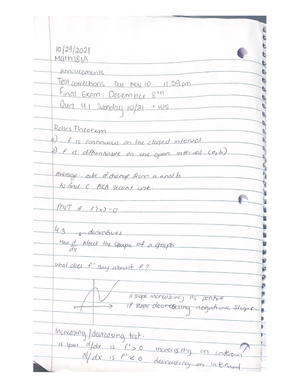 10/29/2021
Math 181A
announcements
Test corrections Due Nov 10 11:59pm
Final Exam: December 8th
Quiz 4.1 Sunday 10/31 + WS
Rolle's Theorem
a) f is continuous on the closed interval
b) f is differentiable on the open interval (a,b)
Average rate of change from a and b
to find c AKA secant line
MVT f'(x)=0
4.3 derivatives
How d/dx Affect the shape of a graph
what does f' say about f?
if slope increasing its positive
if slope decreasing negative slope
Increasing/decreasing test
is your d/dx is f' > 0 increasing on interval
d/dx is f' < 0 decreasing on interval